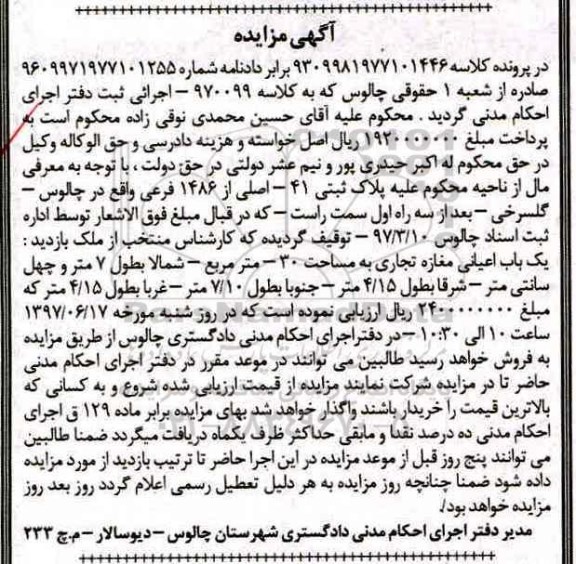 آگهی مزایده
در پرونده کلاسه ۹۳۰۹۹۸۱۹۷۷۱۰۱۴۴۶ برابر دادنامه شماره ۹۶۰۹۹۷۱۹۷۷۱۰۱۲۵۵
صادره از شعبه ۱ حقوقی چالوس که به کلاسه ۹۷۰۰۹۹ – اجرائی ثبت دفتر اجرای
احکام مدنی گردید . محکوم علیه آقای حسین محمدی نوقی زاده محکوم است به
پرداخت مبلغ ریال اصل خواسته و هزینه دادرسی و حق الوکاله وکیل
در حق محکوم له اکبر حیدری پور و نیم عشر دولتی در حق دولت ، با توجه به معرفی
مال از ناحیه محکوم علیه پلاک ثبتی ۴۱ – اصلی از ۱۴۸۶ فرعی واقع در چالوس –
گلسرخی – بعد از سه راه اول سمت راست – که در قبال مبلغ فوق الاشعار توسط اداره
ثبت اسناد چالوس ۹۷/۳/۱۰ – توقیف گردیده که کارشناس منتخب از ملک بازدید :
یک باب اعیانی مغازه تجاری به مساحت ۳۰ – متر مربع – شمالا بطول ۷ متر و چهل
سانتی متر – شرقا بطول ۴/۱۵ متر – جنوبا بطول ۷/۱۰ متر – غربا بطول ۴/۱۵ متر که
مبلغ ریال ارزیابی نموده است که در روز شنبه مورخه ۱۳۹۷/۰۶/۱۷
ساعت ۱۰ الی ۱۰:۳۰ – در دفتر اجرای احکام مدنی دادگستری چالوس از طریق مزایده
به فروش خواهد رسید طالبین می توانند در موعد مقرر در دفتر اجرای احکام مدنی
حاضر تا در مزایده شرکت نمایند مزایده از قیمت ارزیابی شده شروع و به کسانی که
بالاترین قیمت را خریدار باشند واگذار خواهد شد بهای مزایده برابر ماده ۱۲۹ ق اجرای
احکام مدنی ده درصد نقدا و مابقی حداکثر ظرف یکماه دریافت میگردد ضمنا طالبین
می توانند پنج روز قبل از موعد مزایده در این اجرا حاضر تا ترتیب بازدید از مورد مزایده
داده شود ضمنا چنانچه روز مزایده به هر دلیل تعطیل رسمی اعلام گردد روز بعد روز
مزایده خواهد بود/.
مدیر دفتر اجرای احکام مدنی دادگستری شهرستان چالوس – دیوسالار – م.چ ۲۳۳